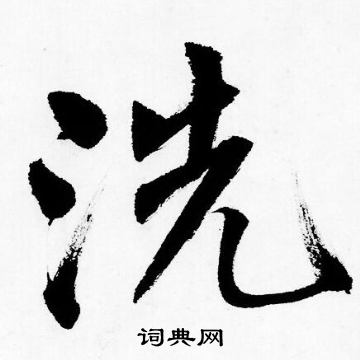 洗
词典网